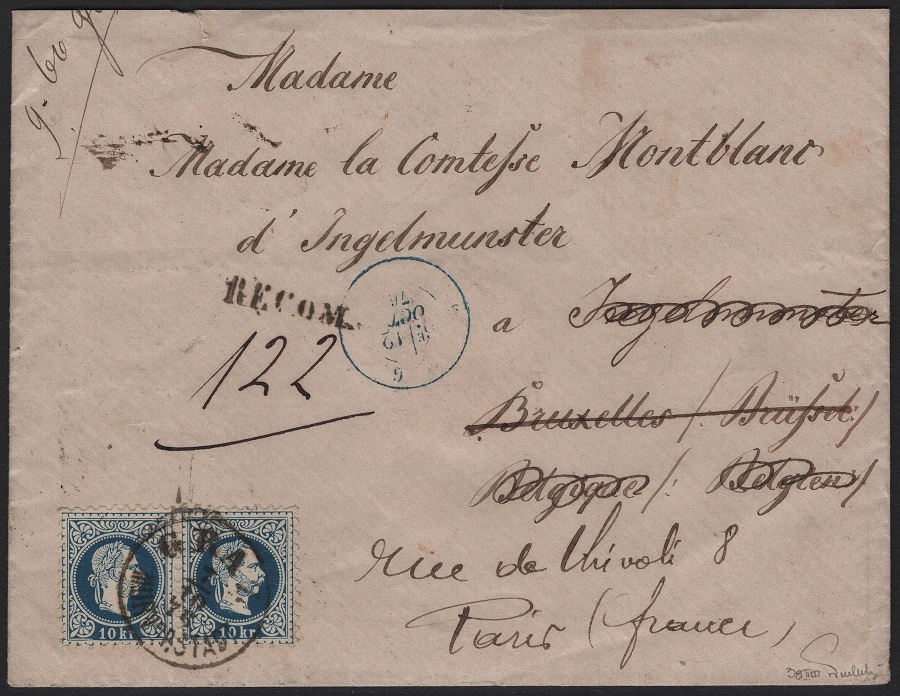 9. 60 gr
Madame
Madame la Comtesse Montblanc
d'Ingelmunster
RECOM.
122
6
12
OCT
a Ingelmunster
Bruxelles /: Brüssel:/
Belgique /: Belgien:/
rue de Rhivoli 8
Paris (france)
GRAZ
INNERE STADT
10 kr
10 kr